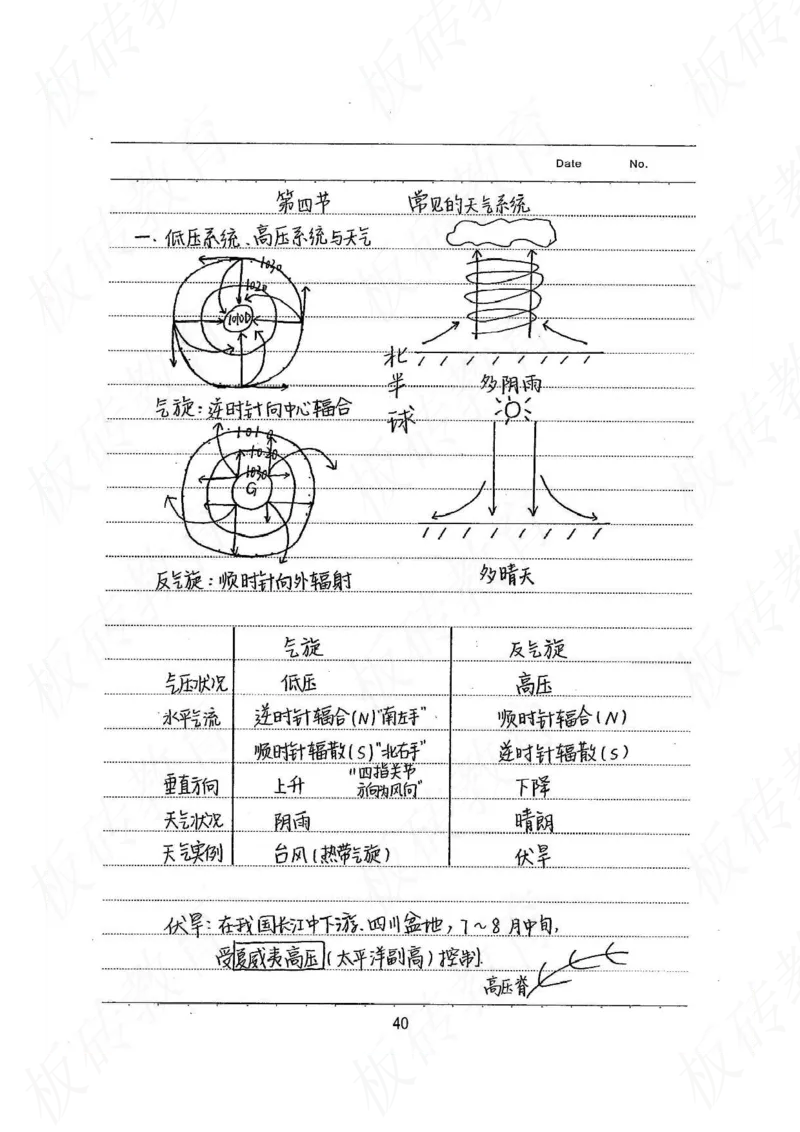 Date No.
第四节 常见的天气系统
一、低压系统、高压系统与天气
1030
1020
1010D
北半球
多阴雨
气旋：逆时针向中心辐合
1010
1020
1030
G
反气旋：顺时针向外辐射
多晴天
气旋 反气旋
气压状况 低压 高压
水平气流 逆时针辐合(N)"南左手" 顺时针辐合(N)
顺时针辐散(S)"北右手" 逆时针辐散(S)
垂直方向 上升 "四指关节方向为风向" 下降
天气状况 阴雨 晴朗
天气实例 台风(热带气旋) 伏旱
伏旱：在我国长江中下游、四川盆地，7~8月中旬,
受夏威夷高压(太平洋副高)控制.
高压脊
40
板砖教育